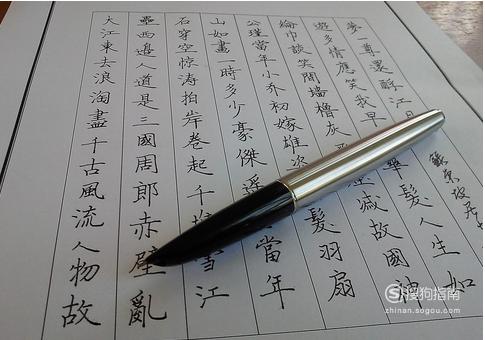 大江東去浪淘盡千古風流人物故
壘西邊人道是三國周郎赤壁亂
石穿空惊涛拍岸卷起千雪江
山如畫一時多少豪傑遥當年
公瑾當年小乔初嫁雄姿髮羽扇
綸巾談笑間墻櫓灰滅故國神
遊多情應笑我早華髮人生如
夢一尊還酹江月
搜狗指南
zhinan.sogou.com